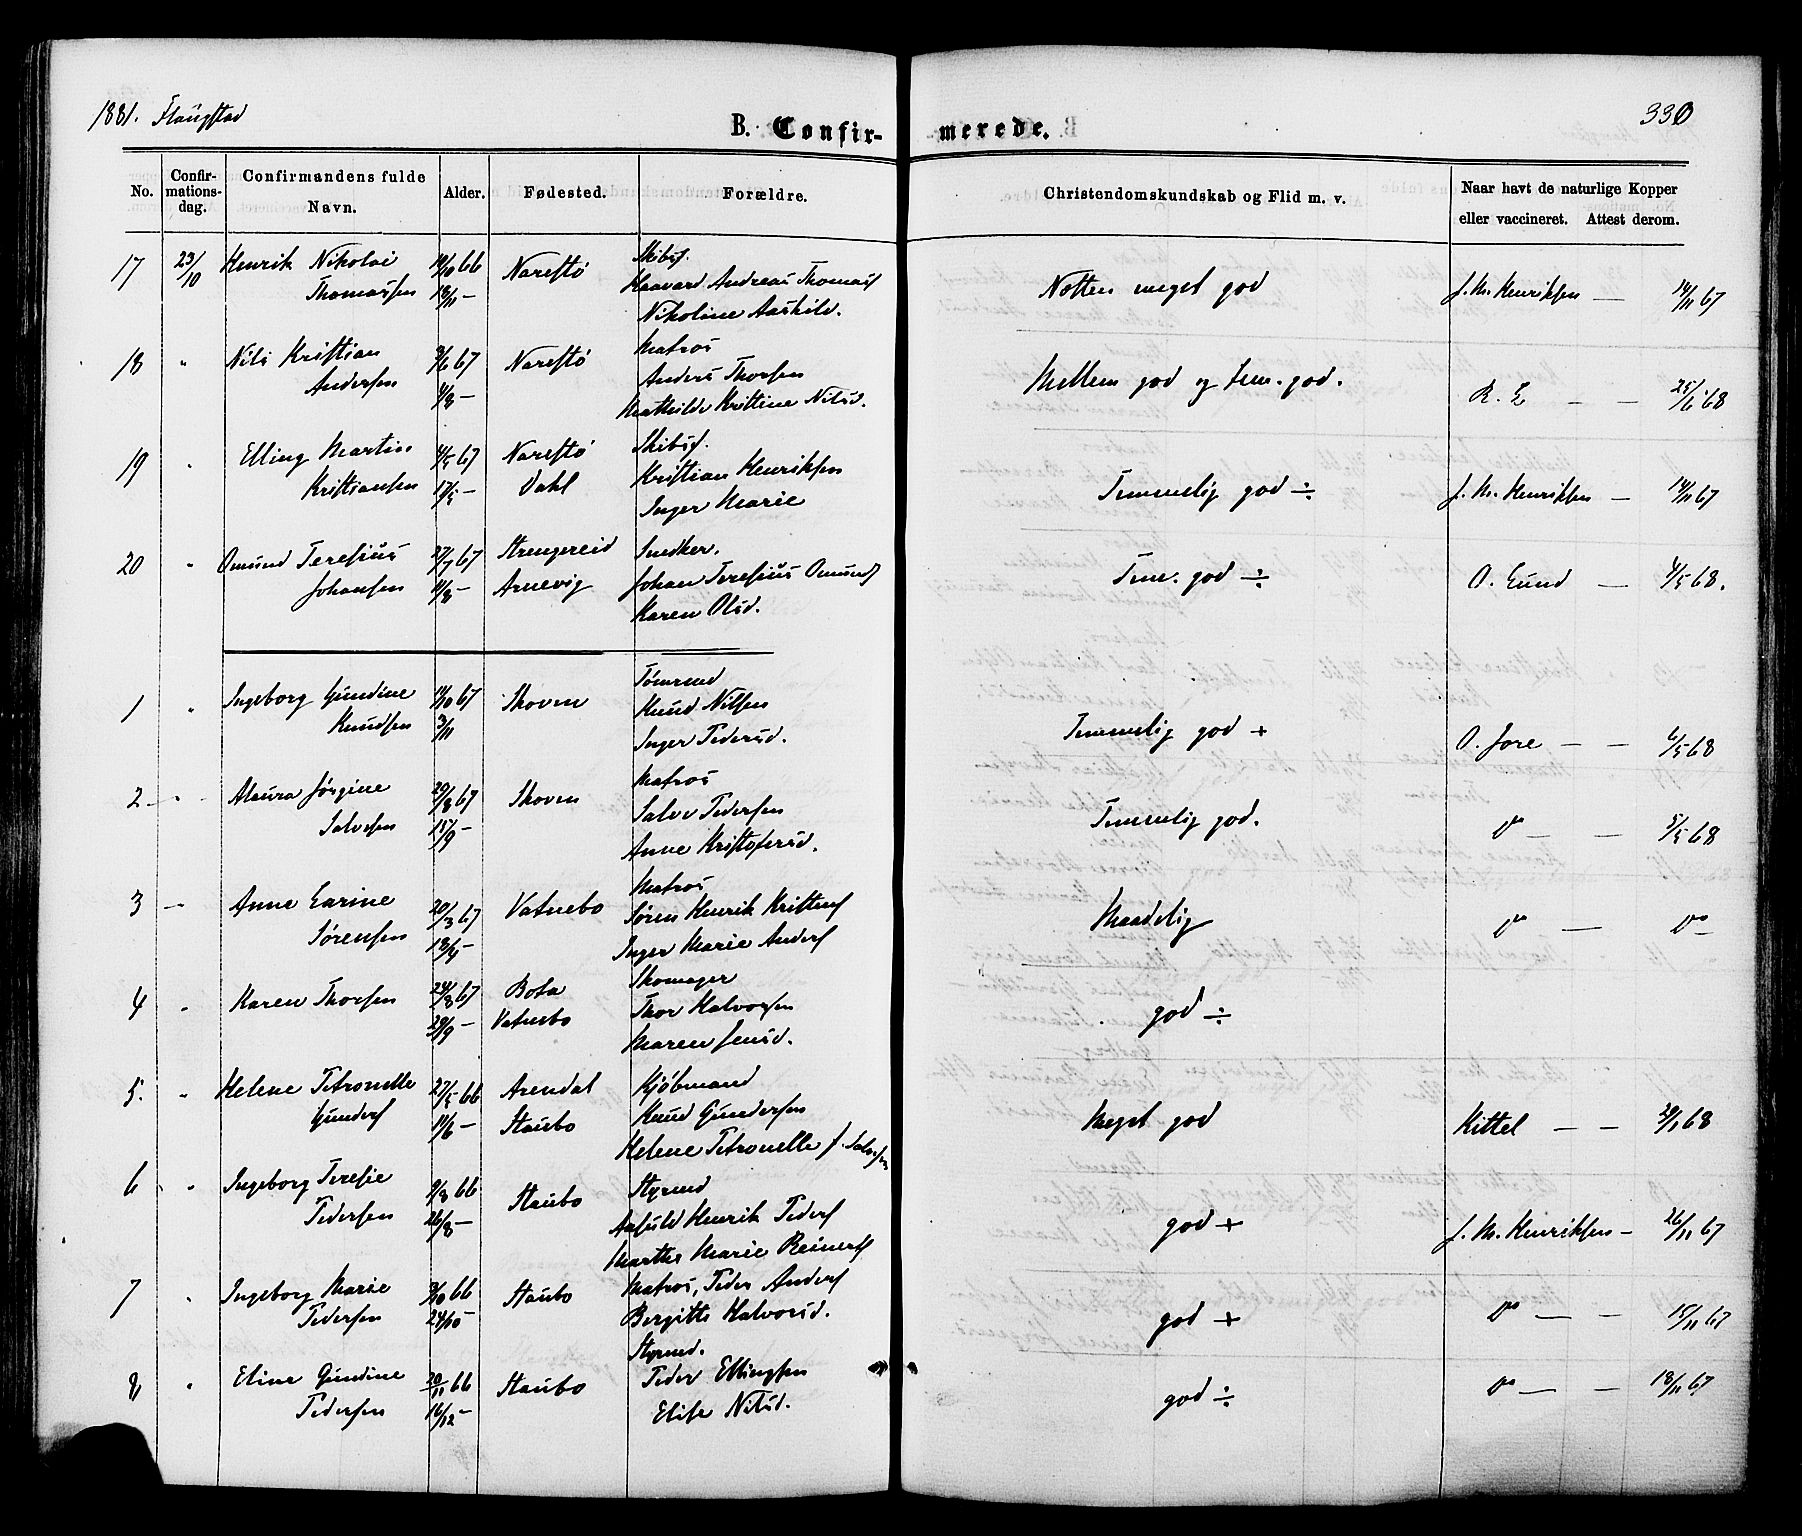 1881. Flangstad
330
B. Confir-
merede.
No.
Confir-
mations-
dag.
Confirmandens fulde
Navn.
Alder.
Fødested.
Forældre.
Christendomskundskab og Flid m. v.
Naar havt de naturlige Kopper
eller vaccineret. Attest derom.
17 23/10 Henrik Nikolai 66 Narestø Skibsf.
Thomassen 18/11 – Haavard Andreas Thomass Notten meget god J. M. Henriksen — 14/11 67
Nikoline Aashild.
18 " Nils Kristian 3/6 67 Narestø Matros
Andersen 4/8 – Anders Thorsen Mellem god og tem. god. R. E — — 25/6 68
Mathilde Kristine Nilsd.
19 " Elling Martin 4/5 67 Narestø Skibsf.
Kristiansen 17/5 – Dahl Kristian Henriksen Temmelig god ÷ J. M. Henriksen — 14/11 67
Inger Marie
20 " Omund Teresius 27/7 67 Strengereid Snedker.
Johansen 11/8 – Arnevig Johan Teresius Omunds Tem. god ÷ O. Lund — 4/5 68.
Karen Olsd.
1 " Ingeborg Gundine 11/10 67 Skoven Tømmd
Knudsen 3/11 Knud Nilsen Temmelig god + O. Jore — — 6/5 68
Inger Pedersd.
2 " Maura Jørgine 29/8 67 Skoven Matros
Salvesen 15/9 – Salve Pedersen Temmelig god. do — — 5/5 68
Anne Kristofersd.
3 — Anne Larine 20/3 67 Vatnebo Matros
Sørensen 18/4 – Søren Henrik Kristens Maadelig do — do –
Inger Marie Anders
4 " Karen Thorsen 24/8 67 Bota Skomager
29/9 – Vatnebo Thor Halvorsen god ÷
Maren Jensd.
5. " Helene Petronelle 27/5 66 Arendal Kjøbmand
Gunders 11/6 – Staubo Knud Gundersen Meget god Kittel — — 29/1 68
Helene Petronelle f. Salvesen
6 " Ingeborg Teresie 9/8 66 Staubo Styrmd
Pedersen 26/8 – Henrik Peders god + J. M. Henriksen – 26/11 67
Marthe Marie Reinerts
7 " Ingeborg Marie 66 Staubo Matros, Peder Anders
Pedersen 24/10 – Bergitte Halvorsd. god + do — — 15/11 67
8 " Eline Gundine 20/11 66 Staubo Styrmd.
Pedersen 16/12 – Peder Ellingsen god ÷ do — — 18/11 67
Elise Nilsd.